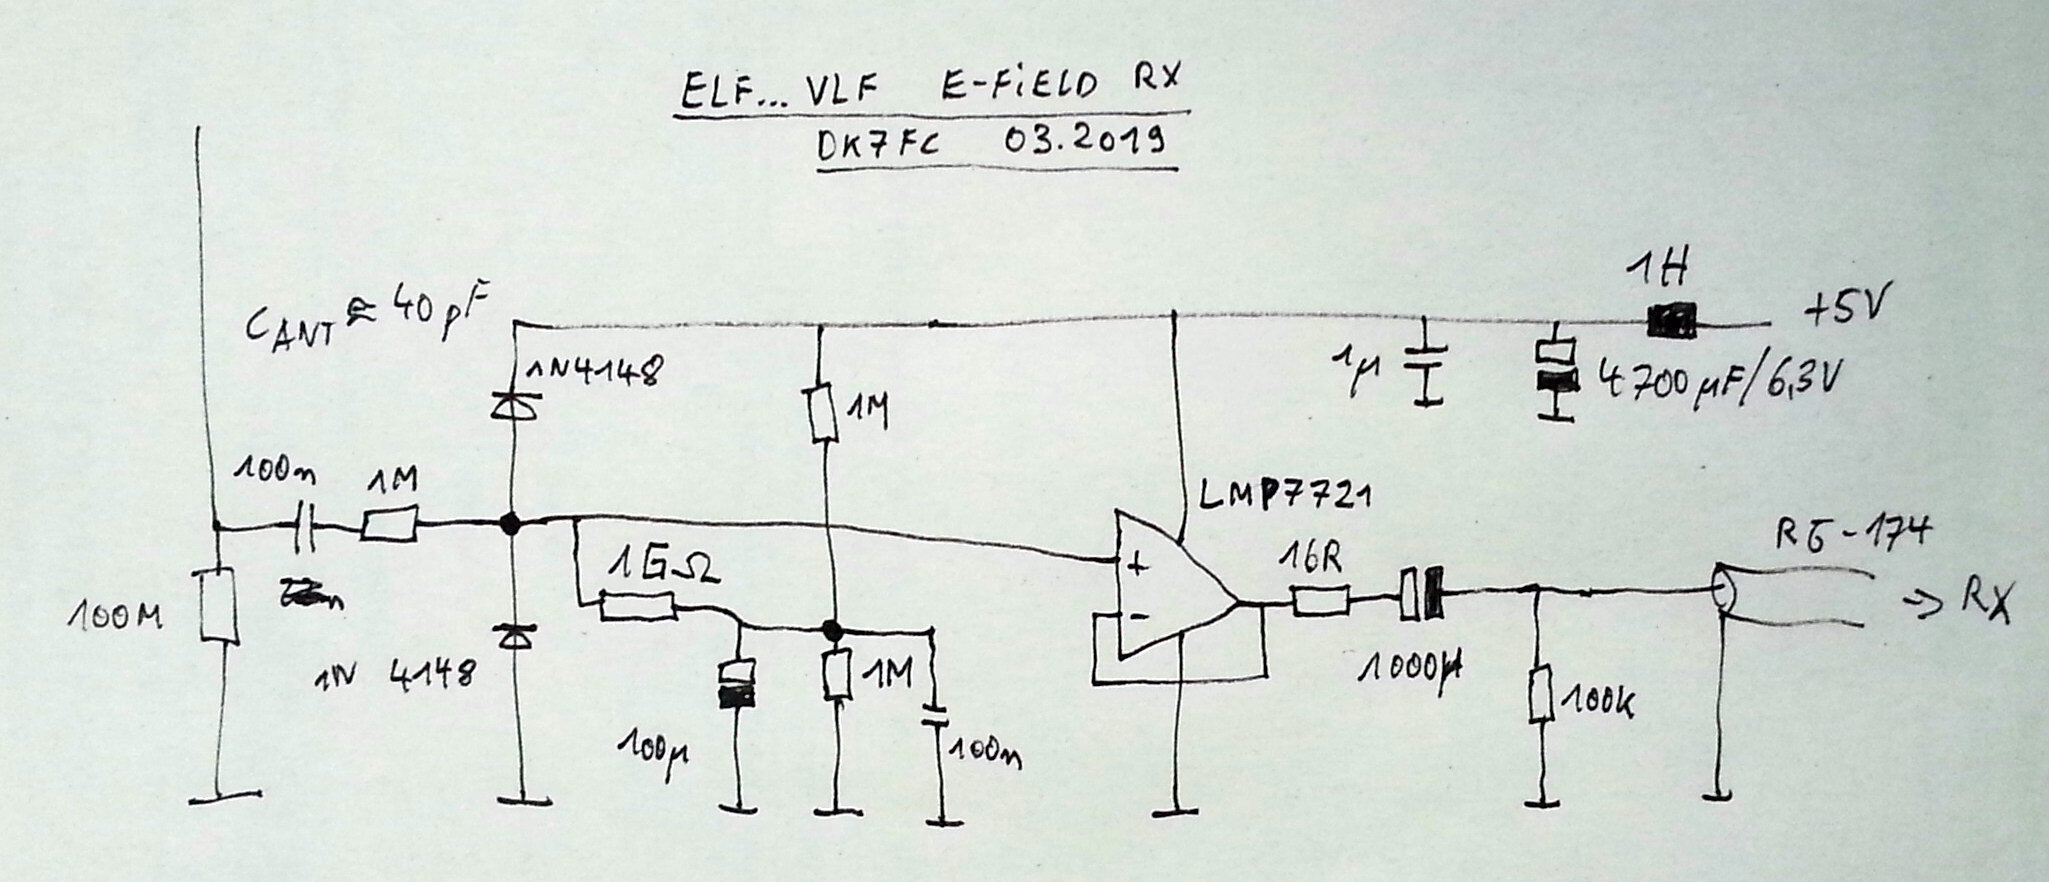 ELF... VLF E-FiELD RX
DK7FC 03.2019
1H
+5V
CANT ≈ 40pF
1N4148
1M
1µ
4700µF/6,3V
100n
1M
LMP7721
RG-174
→ RX
1GΩ
+
-
16R
1000µ
100M
1N 4148
1M
100k
100µ
100n